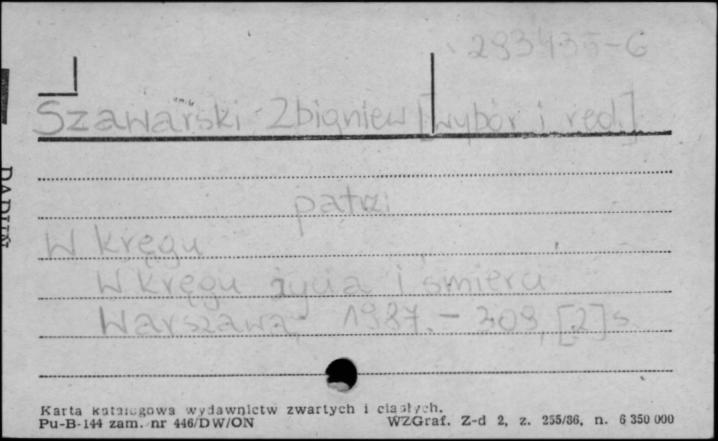 293435-G
Szawarski Zbigniew [wybór i red.]
patrz
W kręgu
W kręgu życia i śmierci
Warszawa, 1987. - 309, [2] s.
Karta katalogowa wydawnictw zwartych i ciągłych.
Pu-B-144 zam. nr 446/DW/ON
WZGraf. Z-d 2, z. 255/86, n. 6 350 000